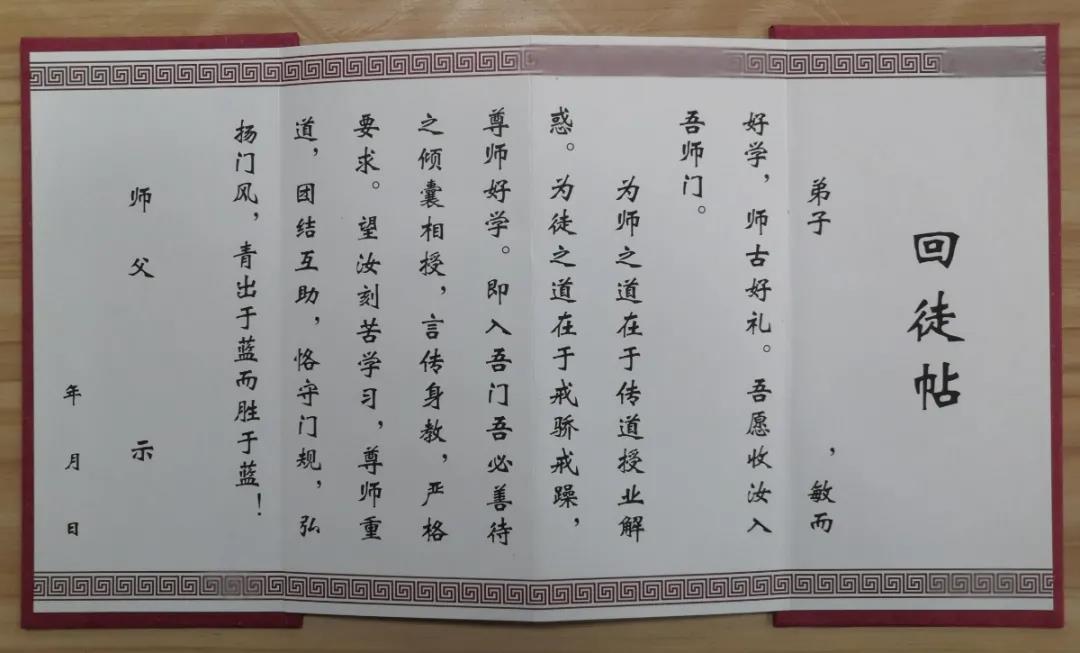 回徒帖
弟子　　　，敏而
好学，师古好礼。吾愿收汝入
吾师门。
为师之道在于传道授业解
惑。为徒之道在于戒骄戒躁，
尊师好学。即入吾门吾必善待
之倾囊相授，言传身教，严格
要求。望汝刻苦学习，尊师重
道，团结互助，恪守门规，弘
扬门风，青出于蓝而胜于蓝！
师父　　　示
年　月　日